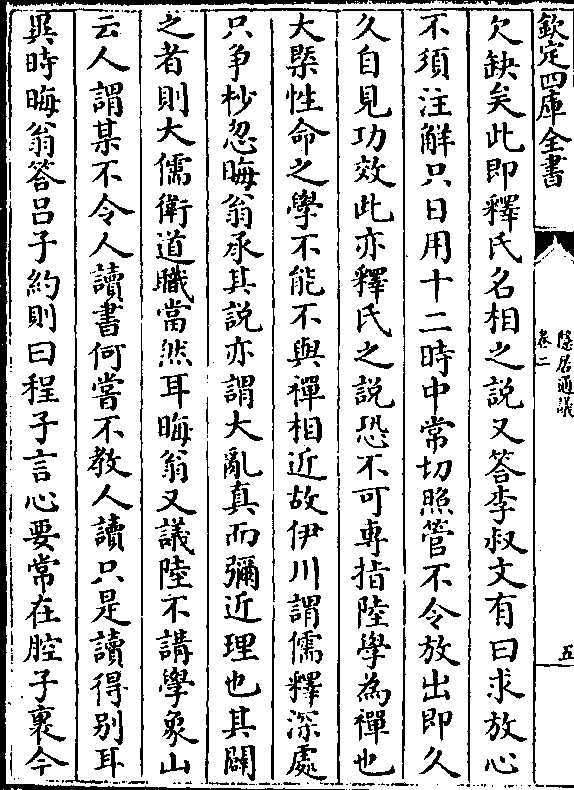 欽定四庫全書
隱居通議
卷二
五
欠缺矣此即釋氏名相之說又答李叔文有曰求放心
不須注解只日用十二時中常切照管不令放出即久
久自見功效此亦釋氏之說恐不可專指陸學為禪也
大槩性命之學不能不與禪相近故伊川謂儒釋深處
只爭杪忽晦翁承其說亦謂大亂真而彌近理也其闢
之者則大儒衛道職當然耳晦翁又議陸不講學象山
云人謂某不令人讀書何嘗不教人讀只是讀得别耳
異時晦翁答吕子約則曰程子言心要常在腔子裏今